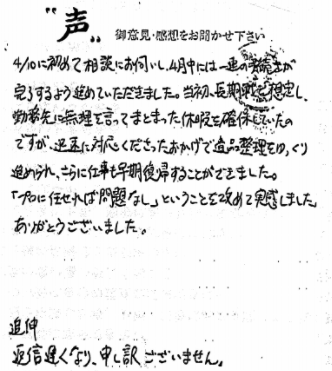 "声" 御意見・感想をお聞かせ下さい
4/10に初めて相談にお伺いし、4月中には一連の手続きが
完了するよう進めていただきました。当初、長期戦を想定し、
勤務先に無理を言ってまとまった休暇を確保していたの
ですが、迅速に対応くださったおかげで遺品整理をゆっくり
進められ、さらに仕事も早期復帰することができました。
「プロに任せれば問題なし」ということを改めて実感しました。
ありがとうございました。
追伸
返信遅くなり、申し訳ございません。